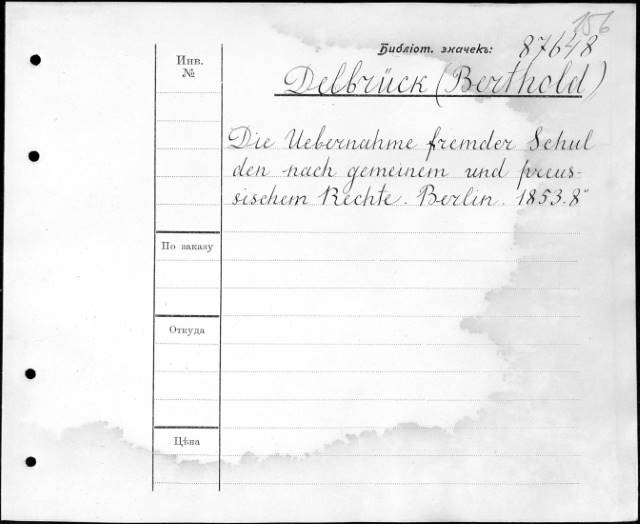 156
Библіот. значекъ: 87648
Инв.
№
Delbrück (Berthold)
Die Uebernahme fremder Schul
den nach gemeinem und preus-
sischem Rechte. Berlin. 1853. 8°
По заказу
Откуда
Цѣна